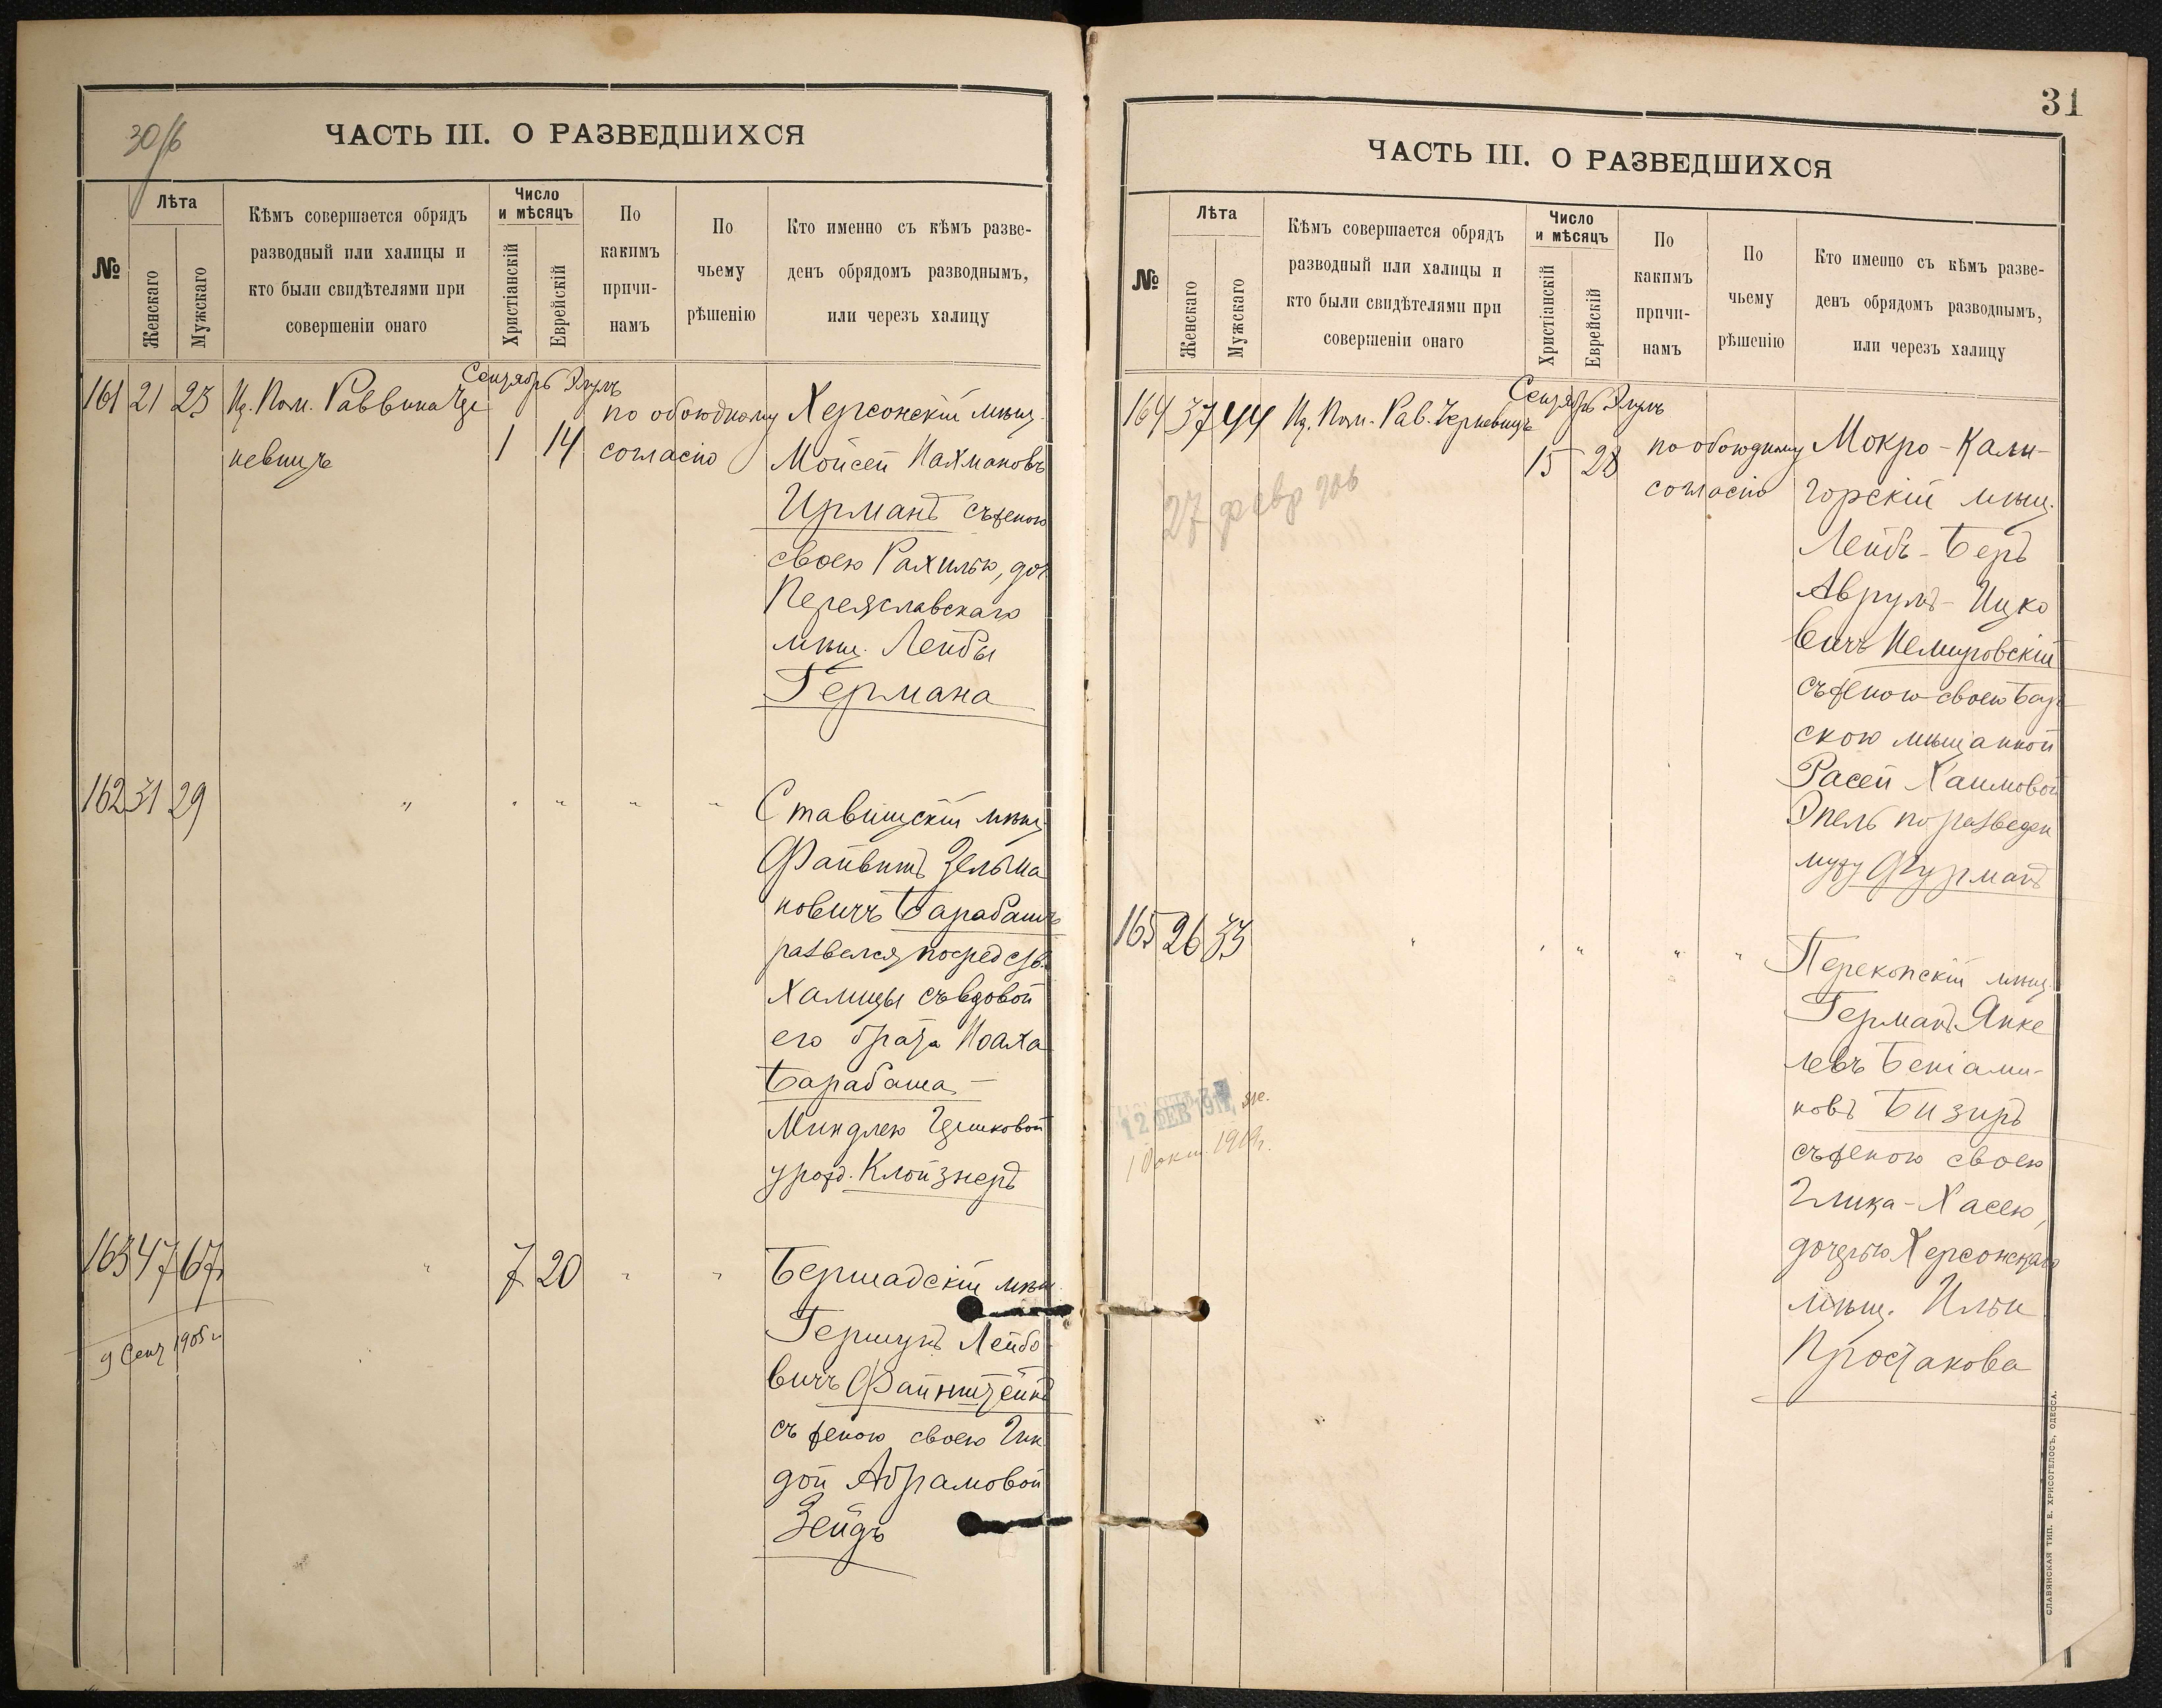 30/б
ЧАСТЬ III. О РАЗВЕДШИХСЯ
№
Лѣта
Женскаго
Мужскаго
Кѣмъ совершается обрядъ
разводный или халицы и
кто были свидѣтелями при
совершеніи онаго
Число
и мѣсяцъ
Христіанскій
Еврейскій
По
какимъ
причи-
намъ
По
чьему
рѣшенію
Кто именно съ кѣмъ разве-
денъ обрядомъ разводнымъ,
или черезъ халицу
Сентябрь Элулъ
161 21 23 Из. Пом. Раввина Че
невицъ
1 14
по обоюдному
согласію
Херсонскій мѣщ.
Мойсей Нахмановъ
Ирманъ съ женою
своею Рахилью, доч
Переяславскаго
мѣщ. Лейбы
Германа
162 31 29 " " " " "
Ставищскій мѣщ.
Файвишъ Зельма
новичъ Барабашъ
развелся посредств.
Халицы съ вдовой
его брата Ноаха
Барабаша
Миндлею Гершковой
урожд. Клойзнеръ
163 47 67 " 7 20 " "
9 Сент 1905 г.
Бершадскій мѣщ.
Гершунъ Лейбо
вичъ Файнштейнъ
съ женою своею Гин
дой Абрамовой
Зейдъ
31
ЧАСТЬ III. О РАЗВЕДШИХСЯ
№
Лѣта
Женскаго
Мужскаго
Кѣмъ совершается обрядъ
разводный или халицы и
кто были свидѣтелями при
совершеніи онаго
Число
и мѣсяцъ
Христіанскій
Еврейскій
По
какимъ
причи-
намъ
По
чьему
рѣшенію
Кто именно съ кѣмъ разве-
денъ обрядомъ разводнымъ,
или черезъ халицу
Сентябрь Элулъ
164 37 44 Из. Пом. Рав.
15 28
по обоюдному
согласію
27 февр 906
Мокро-Кали-
горскій мѣщ.
Лейбъ-Беръ
Аврумъ-Ицко
вичъ Немировскій
съ женою своею Бар
скою мѣщанкой
Расей Хаимовой
по разведен
мужу Фурманъ
165 26 33 " " " " "
12 ФЕВ 1917
10 окт. 1919 г.
Перекопскій мѣщ.
Германъ Янке
левъ Беніами-
новъ Бизиръ
съ женою своею
Хасею,
дочерью Херсонскаго
мѣщ. Ильи
Простакова
СЛАВЯНСКАЯ ТИП. Е. ХРИСОГЕЛОСЪ, ОДЕССА.